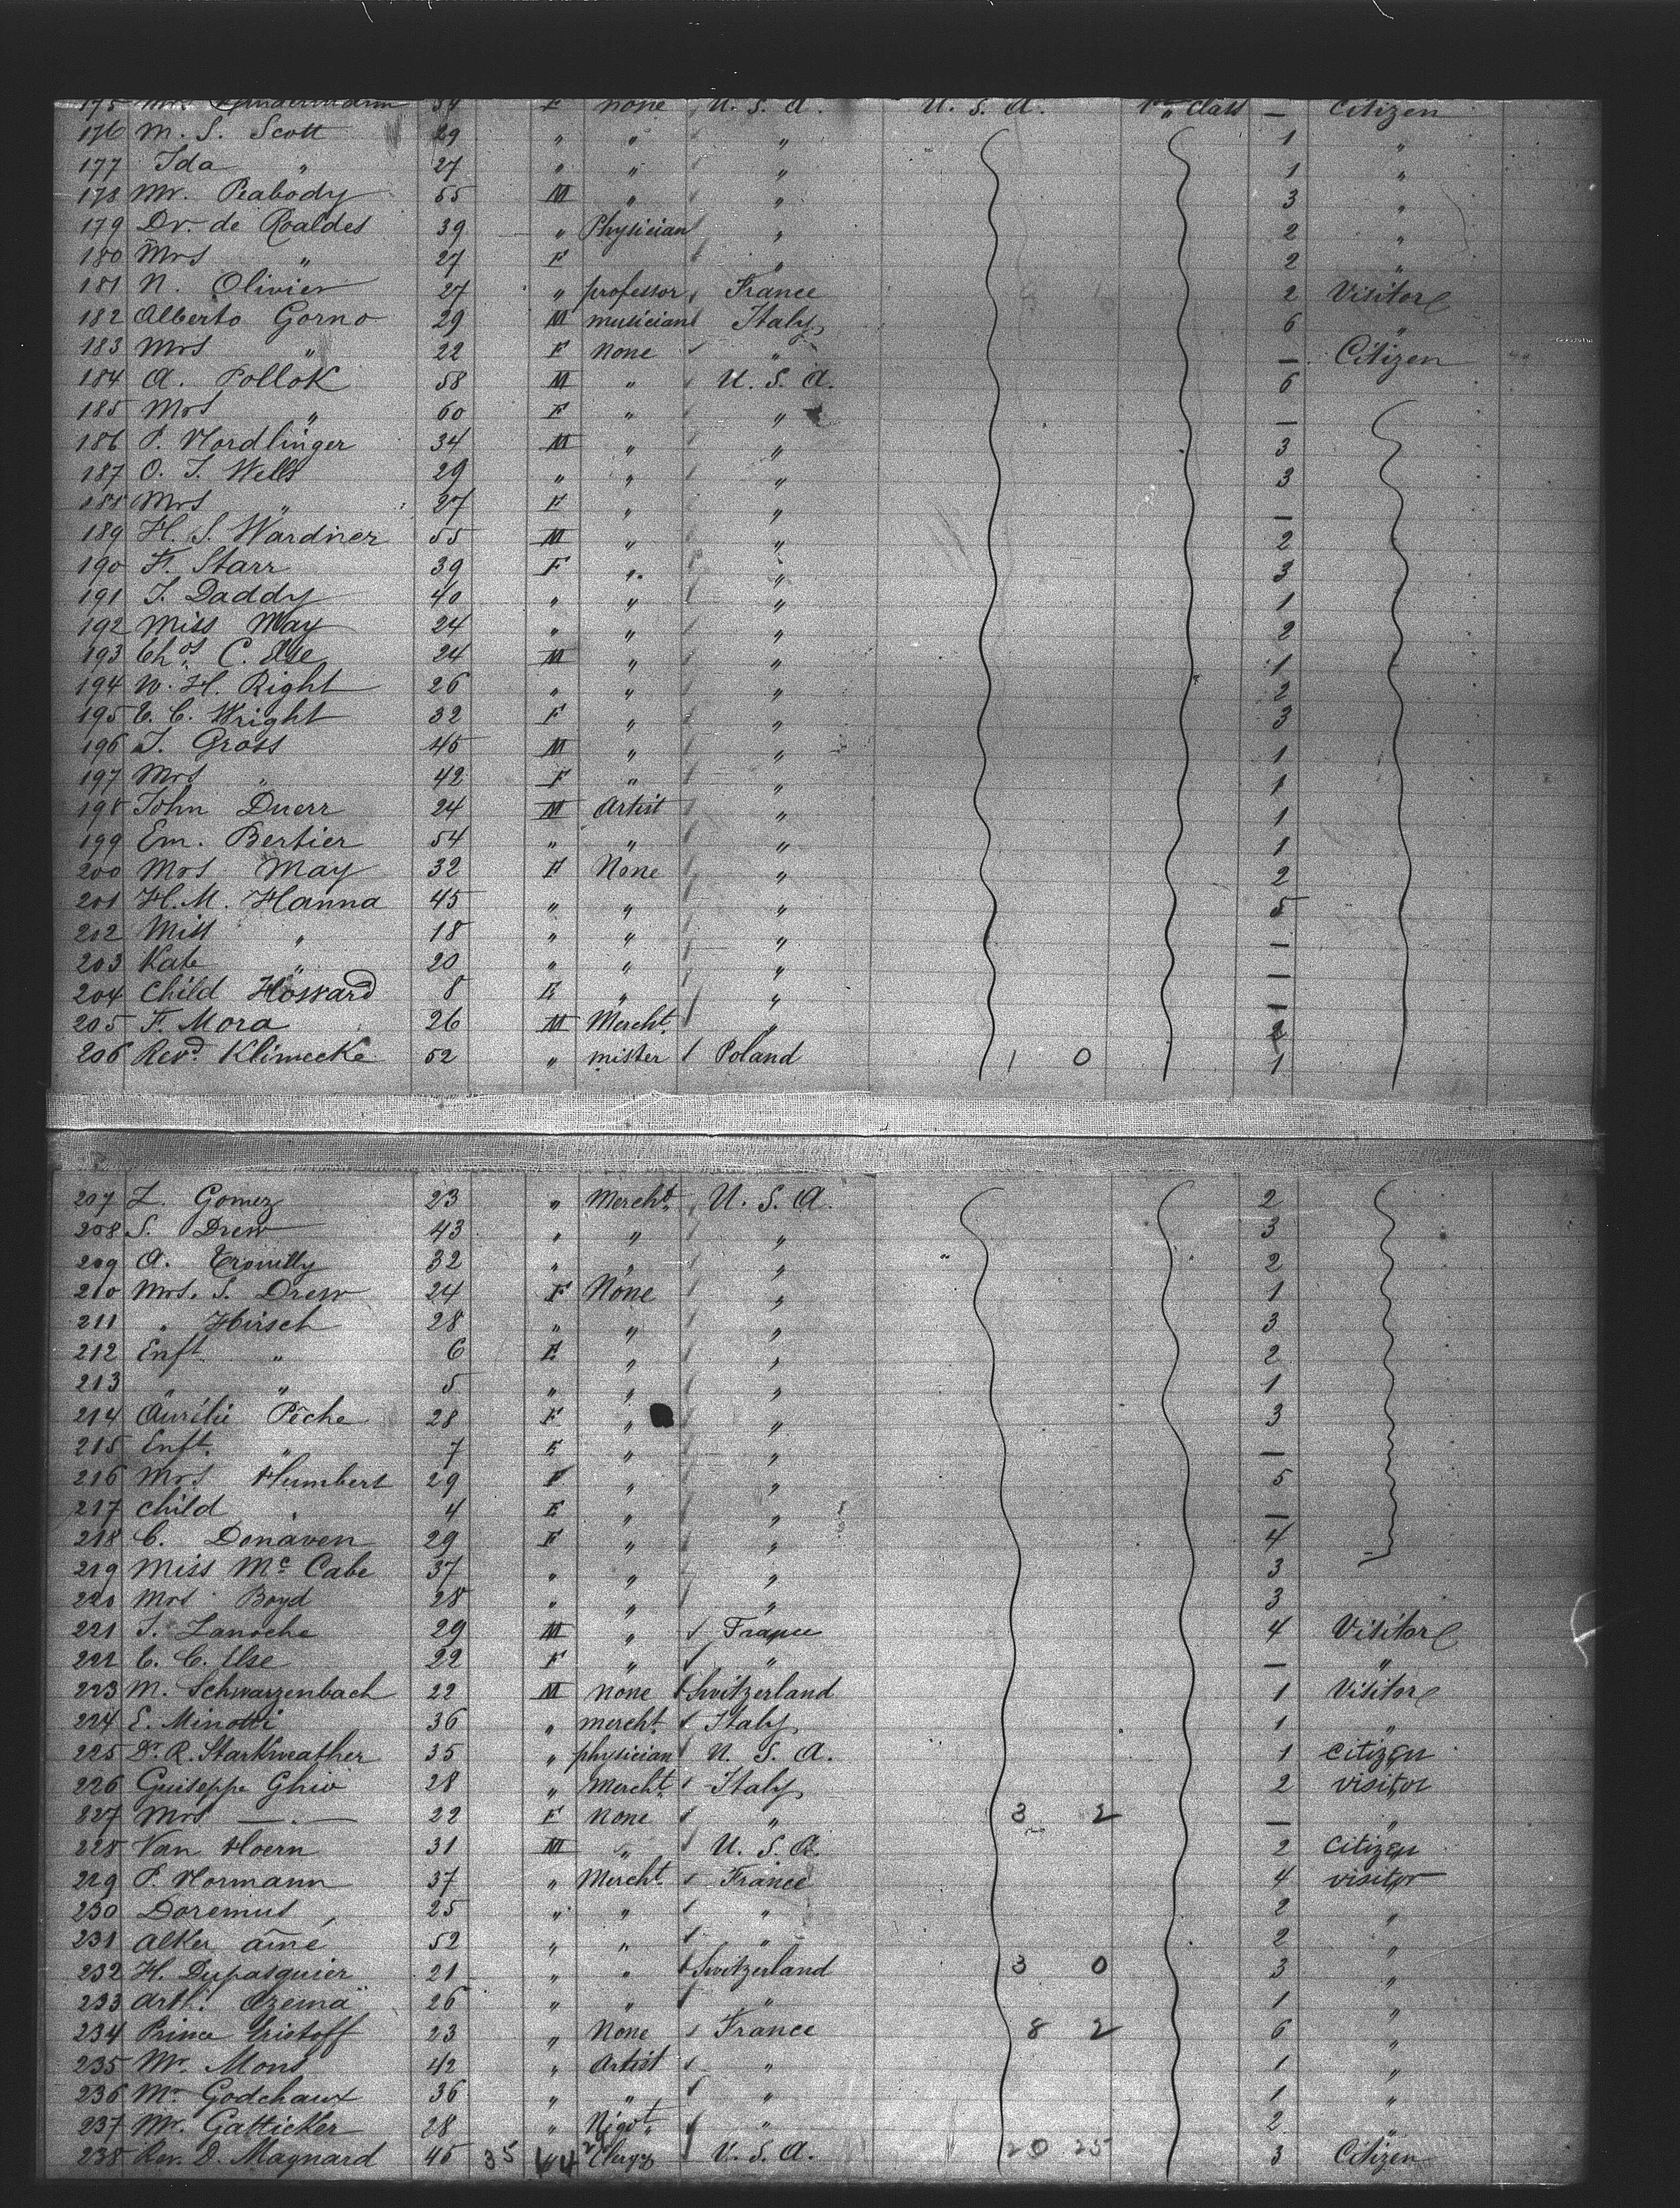 175 Mrs 34 F none U. S. A. U. S. A. 1st Class — Citizen
176 M. S. Scott 29 " " " 1 "
177 Ida " 27 " " " 1 "
178 Mr. Peabody 55 M " " 3 "
179 Dr. de Roaldes 39 " Physician " 2 "
180 Mrs " 27 F " 2 "
181 N. Olivier 27 " professor France 2 Visitor
182 Alberto Gorno 29 M musician Italy 6 "
183 Mrs " 22 F none " — Citizen
184 A. Pollok 58 M " U. S. A. 6
185 Mrs " 60 F " " —
186 P. Nordlinger 34 M " " 3
187 O. J. Wells 29 " " " 3
188 Mrs " 27 F " " —
189 H. S. Wardner 55 M " " 2
190 F. Starr 39 F " " 3
191 J. Daddy 40 " " " 1
192 Miss May 24 " " " 2
193 Chas. C. Else 24 M " " 1
194 W. H. Right 26 " " " 2
195 E. C. Wright 32 F " " 3
196 J. Gross 45 M " " 1
197 Mrs " 42 F " " 1
198 John Duerr 24 M Artist " 1
199 Em. Bertier 54 " " " 1
200 Mrs May 32 F None " 2
201 H. M. Hanna 45 " " " 5
202 Miss " 18 " " " —
203 Kate " 20 " " " —
204 Child Howard 8 E " " —
205 F. Mora 26 M Mercht. " 2
206 Revd. Klimecke 52 " mister Poland 1 0 1
207 L. Gomez 23 " Mercht. U. S. A. 2
208 S. Drew 43 " " " 3
209 A. 32 " " " 2
210 Mrs. S. Drew 24 F None " 1
211 " Hirsch 28 " " " 3
212 Enft. " 6 E " " 2
213 " " 5 " " " 1
214 Aurélie Pêche 28 F " " 3
215 Enft. " 7 E " " —
216 Mrs Humbert 29 F " " 5
217 child " 4 E " " —
218 C. Donaven 29 F " " 4
219 Miss Mc Cabe 37 " " " 3
220 Mrs Boyd 28 " " " 3
221 J. Lanoche 29 M " France 4 Visitor
222 C. C. Else 22 F " " — "
223 M. Schwarzenbach 22 M none Switzerland 1 Visitor
224 E. Minotti 36 " mercht. Italy 1 "
225 Dr. R. Starkweather 35 " physician U. S. A. 1 citizen
226 Guiseppe Ghio 28 " Mercht. Italy 2 visitor
227 Mrs — " — 22 F none " 3 2 — "
228 Van Hoern 31 M " U. S. A. 2 Citizen
229 P. Normann 37 " Mercht. France 4 visitor
230 Doremus 25 " " " 2 "
231 Alker aîné 52 " " " 2 "
232 H. Dupasquier 21 " " Switzerland 3 0 3 "
233 Arth. Azema 26 " " " 1 "
234 Prince Eristoff 23 " None France 8 2 6 "
235 Mr. Mons 42 " Artist " 1 "
236 Mr. Godchaux 36 " " " 1 "
237 Mr. Gatticker 28 " Négot. " 2 "
238 Rev. D. Magnard 45 35 44 Clergy U. S. A. 20 25 3 Citizen